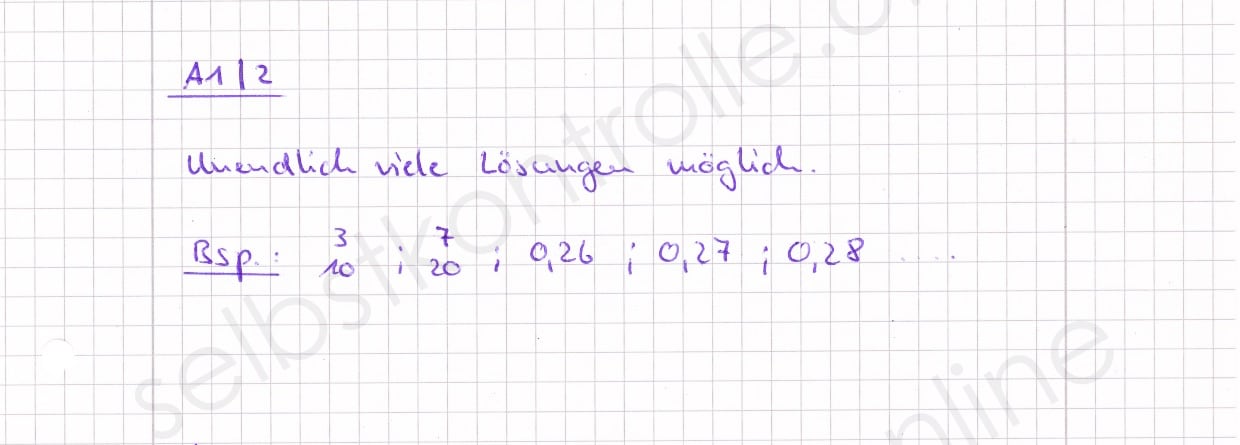 A1 | 2
Unendlich viele Lösungen möglich.
Bsp.: 3/10 ; 7/20 ; 0,26 ; 0,27 ; 0,28 .....
selbstkontrolle.o
online